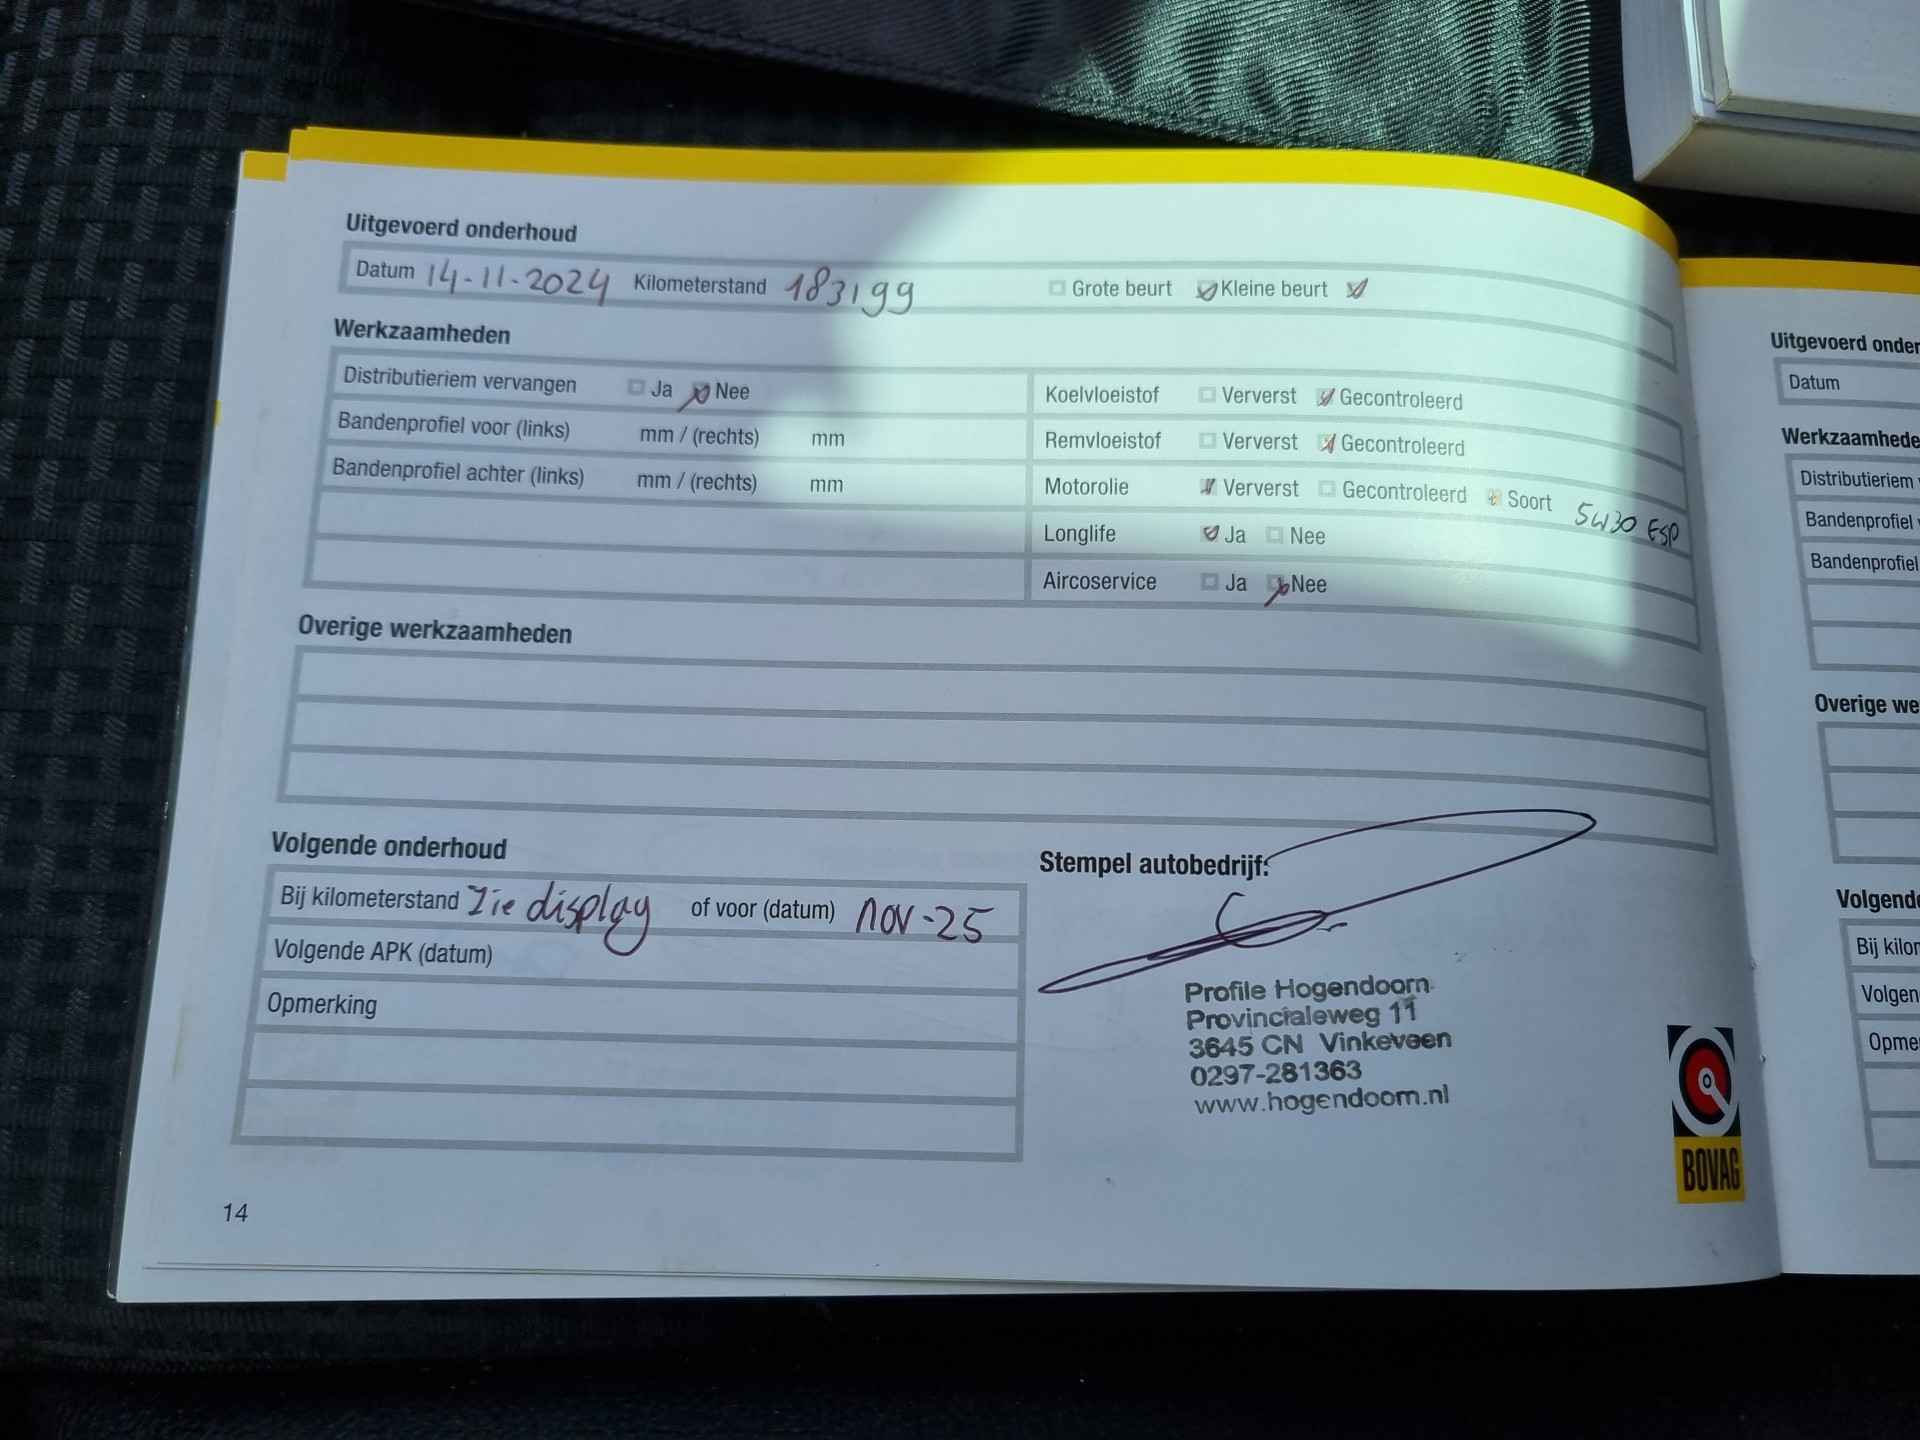 Uitgevoerd onderhoud
Datum 14-11-2024 Kilometerstand 183199 Grote beurt Kleine beurt
Werkzaamheden
Distributieriem vervangen Ja Nee
Bandenprofiel voor (links) mm / (rechts) mm
Bandenprofiel achter (links) mm / (rechts) mm
Koelvloeistof Ververst Gecontroleerd
Remvloeistof Ververst Gecontroleerd
Motorolie Ververst Gecontroleerd Soort 5W30 ESP
Longlife Ja Nee
Aircoservice Ja Nee
Overige werkzaamheden
Volgende onderhoud
Bij kilometerstand Zie display of voor (datum) nov-25
Volgende APK (datum)
Opmerking
Stempel autobedrijf:
Profile Hogendoorn
Provincialeweg 11
3645 CN Vinkeveen
0297-281363
www.hogendoorn.nl
BOVAG
14
Uitgevoerd onder
Datum
Werkzaamhede
Distributieriem
Bandenprofiel
Bandenprofiel
Overige we
Volgend
Bij kilon
Volgen
Opme